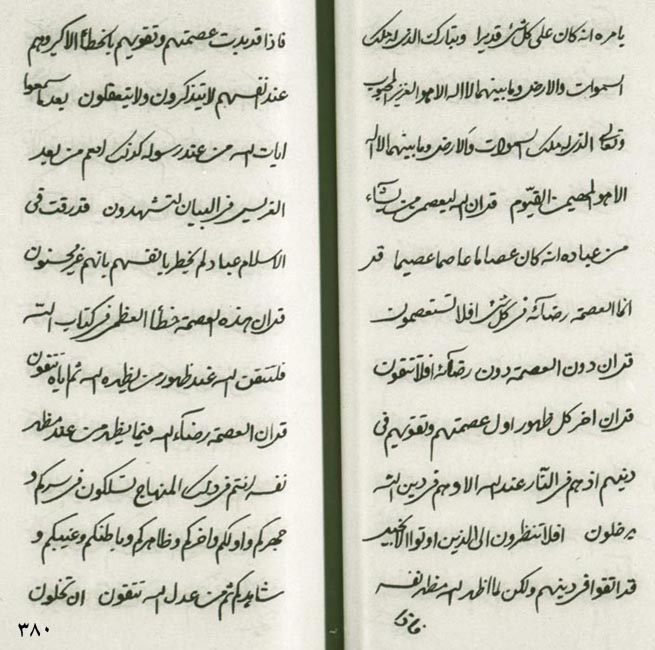 يامره انه كان على كل شئ قديرا وتبارك الذى له ملك
السموات والارض وما بينهما لا اله الا هو العزيز المحبوب
وتعالى الذى له ملك السموات والارض وما بينهما لا اله
الا هو المهيمن القيوم قد ان الله ليعصمن من يشاء
من عباده انه كان عصاما عاصما عصيما قد
انما العصمة رضائه فى كل شئ افلا تستعصمون
قد ان دون العصمة دون رضائه افلا تتقون
قد ان اخر كل ظهور اول عصمتهم وتقويهم فى
دينهم اذ هم فى النار عند الله الا وهم فى دين الله
يدخلون افلا تنظرون الى الذين اوتوا الانجيل
قد اتقوا فى دينهم ولكن لما اظهر الله مظهر نفسه
فاذا
فاذا قد بدت عصمتهم وتقويهم بالخطأ الاكبر وهم
عند انفسهم لا يتذكرون ولا يتعقلون بعد ما سمعوا
ايات الله من عند رسوله كذلك انتم من بعد
الفرنس فى البيان لتشهدون قد رقت فى
الاسلام عباد لم يخطر بانفسهم بانهم غير محسنون
قد ان هذه العصمة خطأ العظمى فى كتاب الله
فلتتقن الله عند ظهور من يظهره الله ثم اياه تتقون
قد ان العصمة رضاء الله فيما يظهر من عند مظهر
نفسه انتم فى ذلك المنهاج تسلكون فى سركم و
جهركم واولكم واخركم وظاهركم وباطنكم وغيبكم و
شاهدكم ثم من عدل الله تتقون ان تحلون
٣٨٠